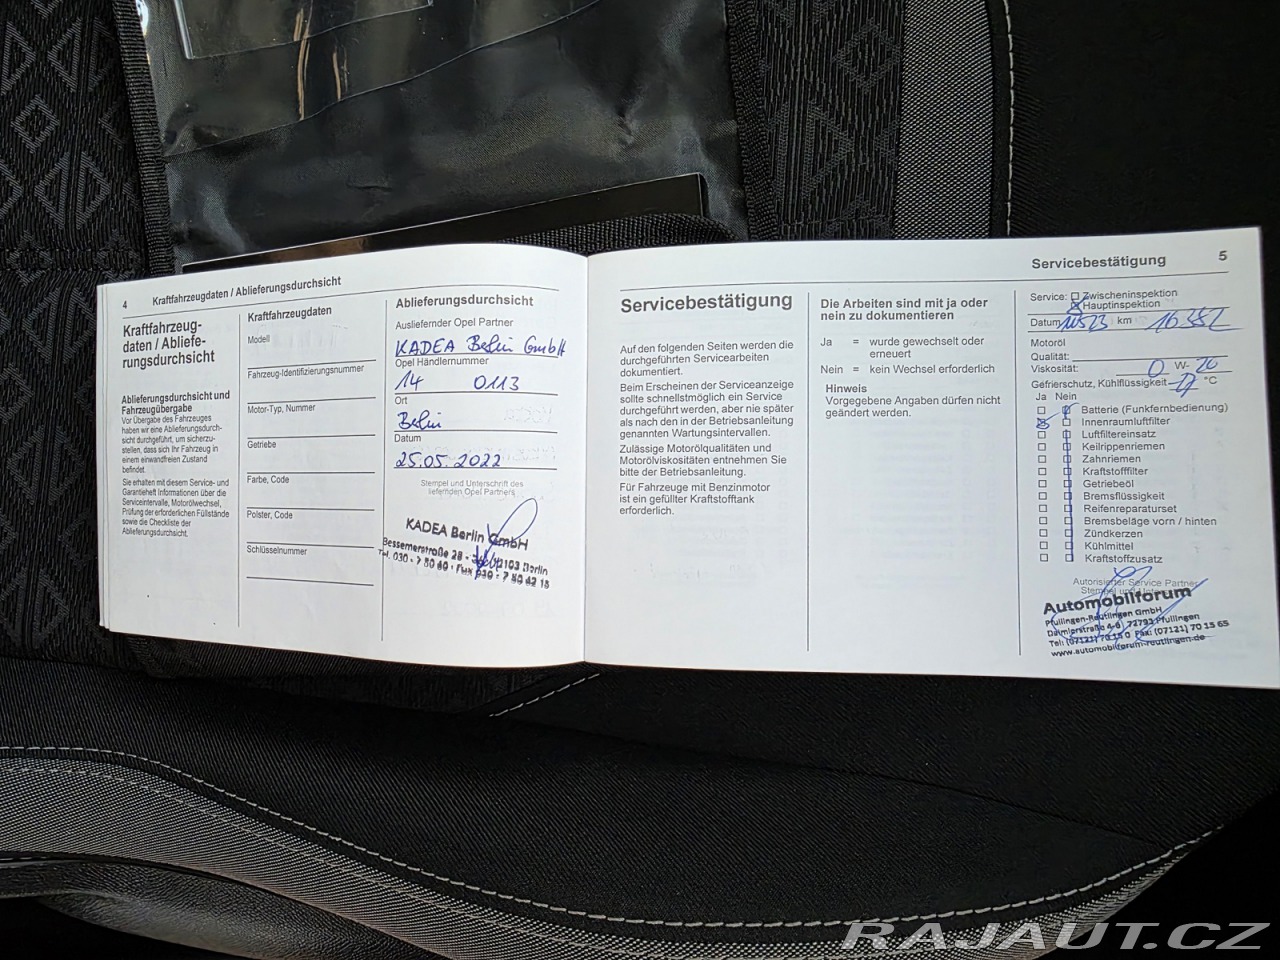 4 Kraftfahrzeugdaten / Ablieferungsdurchsicht
Kraftfahrzeug-
daten / Abliefe-
rungsdurchsicht
Ablieferungsdurchsicht und
Fahrzeugübergabe
Vor Übergabe des Fahrzeuges
haben wir eine Ablieferungsdurch-
sicht durchgeführt, um sicherzu-
stellen, dass sich Ihr Fahrzeug in
einem einwandfreien Zustand
befindet.
Sie erhalten mit diesem Service- und
Garantieheft Informationen über die
Serviceintervalle, Motorölwechsel,
Prüfung der erforderlichen Füllstände
sowie die Checkliste der
Ablieferungsdurchsicht.
Kraftfahrzeugdaten
Modell
Fahrzeug-Identifizierungsnummer
Motor-Typ, Nummer
Getriebe
Farbe, Code
Polster, Code
Schlüsselnummer
Ablieferungsdurchsicht
Ausliefernder Opel Partner
KADEA Berlin GmbH
Opel Händlernummer
14 0113
Ort
Berlin
Datum
25.05.2022
Stempel und Unterschrift des
liefernden Opel Partners
KADEA Berlin GmbH
Bessemerstraße 28 - 12103 Berlin
Tel. 030 - 7 50 40 - Fax 030 - 7 50 42 15
Servicebestätigung 5
Servicebestätigung
Auf den folgenden Seiten werden die
durchgeführten Servicearbeiten
dokumentiert.
Beim Erscheinen der Serviceanzeige
sollte schnellstmöglich ein Service
durchgeführt werden, aber nie später
als nach den in der Betriebsanleitung
genannten Wartungsintervallen.
Zulässige Motorölqualitäten und
Motorölviskositäten entnehmen Sie
bitte der Betriebsanleitung.
Für Fahrzeuge mit Benzinmotor
ist ein gefüllter Kraftstofftank
erforderlich.
Die Arbeiten sind mit ja oder
nein zu dokumentieren
Ja = wurde gewechselt oder
erneuert
Nein = kein Wechsel erforderlich
Hinweis
Vorgegebene Angaben dürfen nicht
geändert werden.
Service: Zwischeninspektion
Hauptinspektion
Datum km
Motoröl
Qualität:
Viskosität: 0 W- 20
Gefrierschutz, Kühlflüssigkeit °C
Ja Nein
Batterie (Funkfernbedienung)
Innenraumluftfilter
Luftfiltereinsatz
Keilrippenriemen
Zahnriemen
Kraftstofffilter
Getriebeöl
Bremsflüssigkeit
Reifenreparaturset
Bremsbeläge vorn / hinten
Zündkerzen
Kühlmittel
Kraftstoffzusatz
Autorisierter Service Partner
Stempel und
Automobilforum
Pfullingen-Reutlingen GmbH
Daimlerstraße 4-6, 72793 Pfullingen
Tel: (07121) 70 15 0 Fax: (07121) 70 15 65
www.automobilforum-reutlingen.de
RAJAUT.CZ